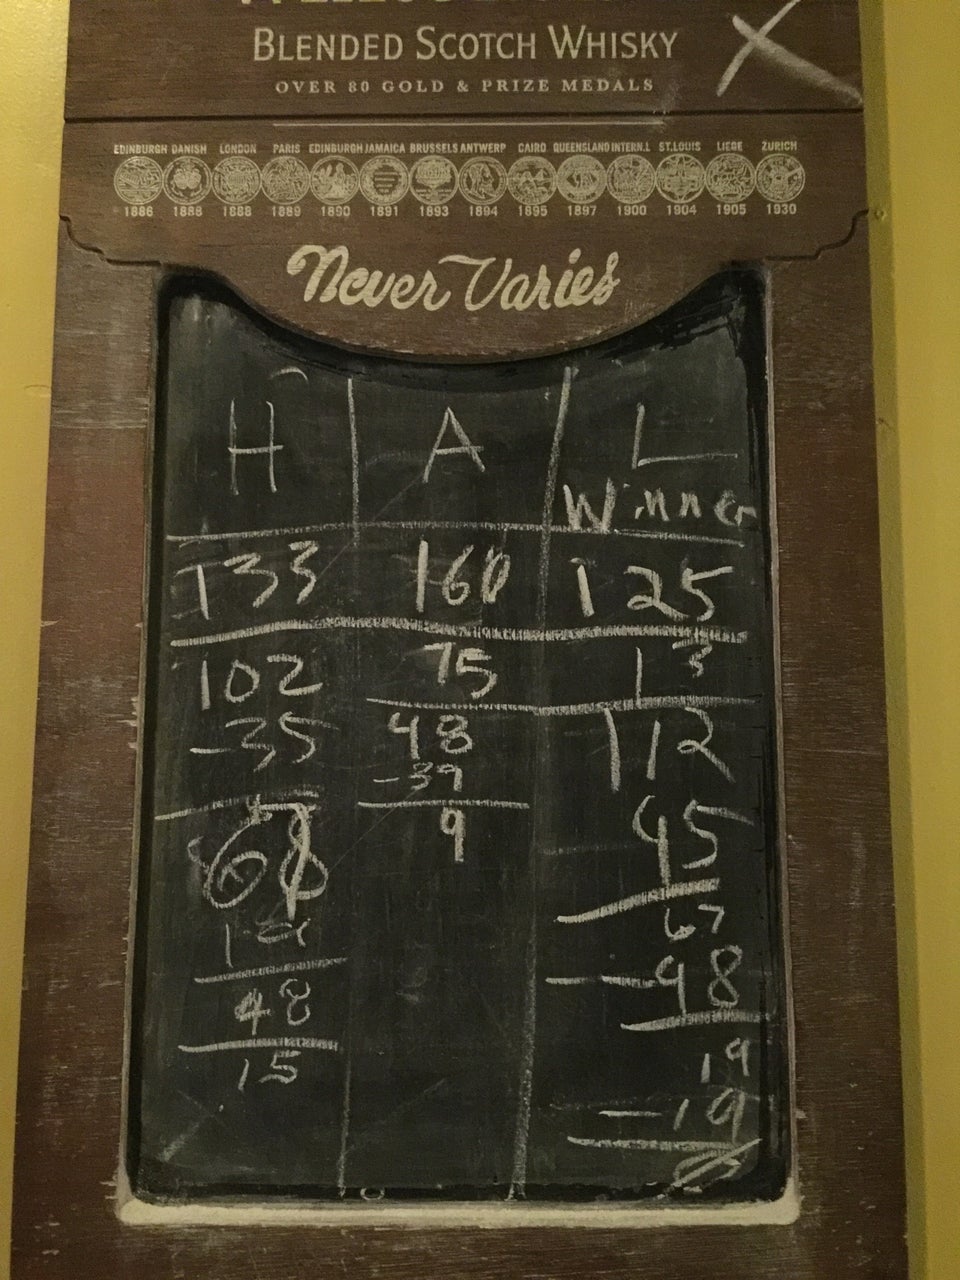 BLENDED SCOTCH WHISKY
OVER 80 GOLD & PRIZE MEDALS
EDINBURGH DANISH LONDON PARIS EDINBURGH JAMAICA BRUSSELS ANTWERP CAIRO QUEENSLAND INTERN.L ST.LOUIS LIEGE ZURICH
1886 1888 1888 1889 1890 1891 1893 1894 1895 1897 1900 1904 1905 1930
Never Varies
H A L
Winner
133 160 125
102 75 13
-35 48 112
-39 45
68 9 67
19 -48
48 19
15 -19